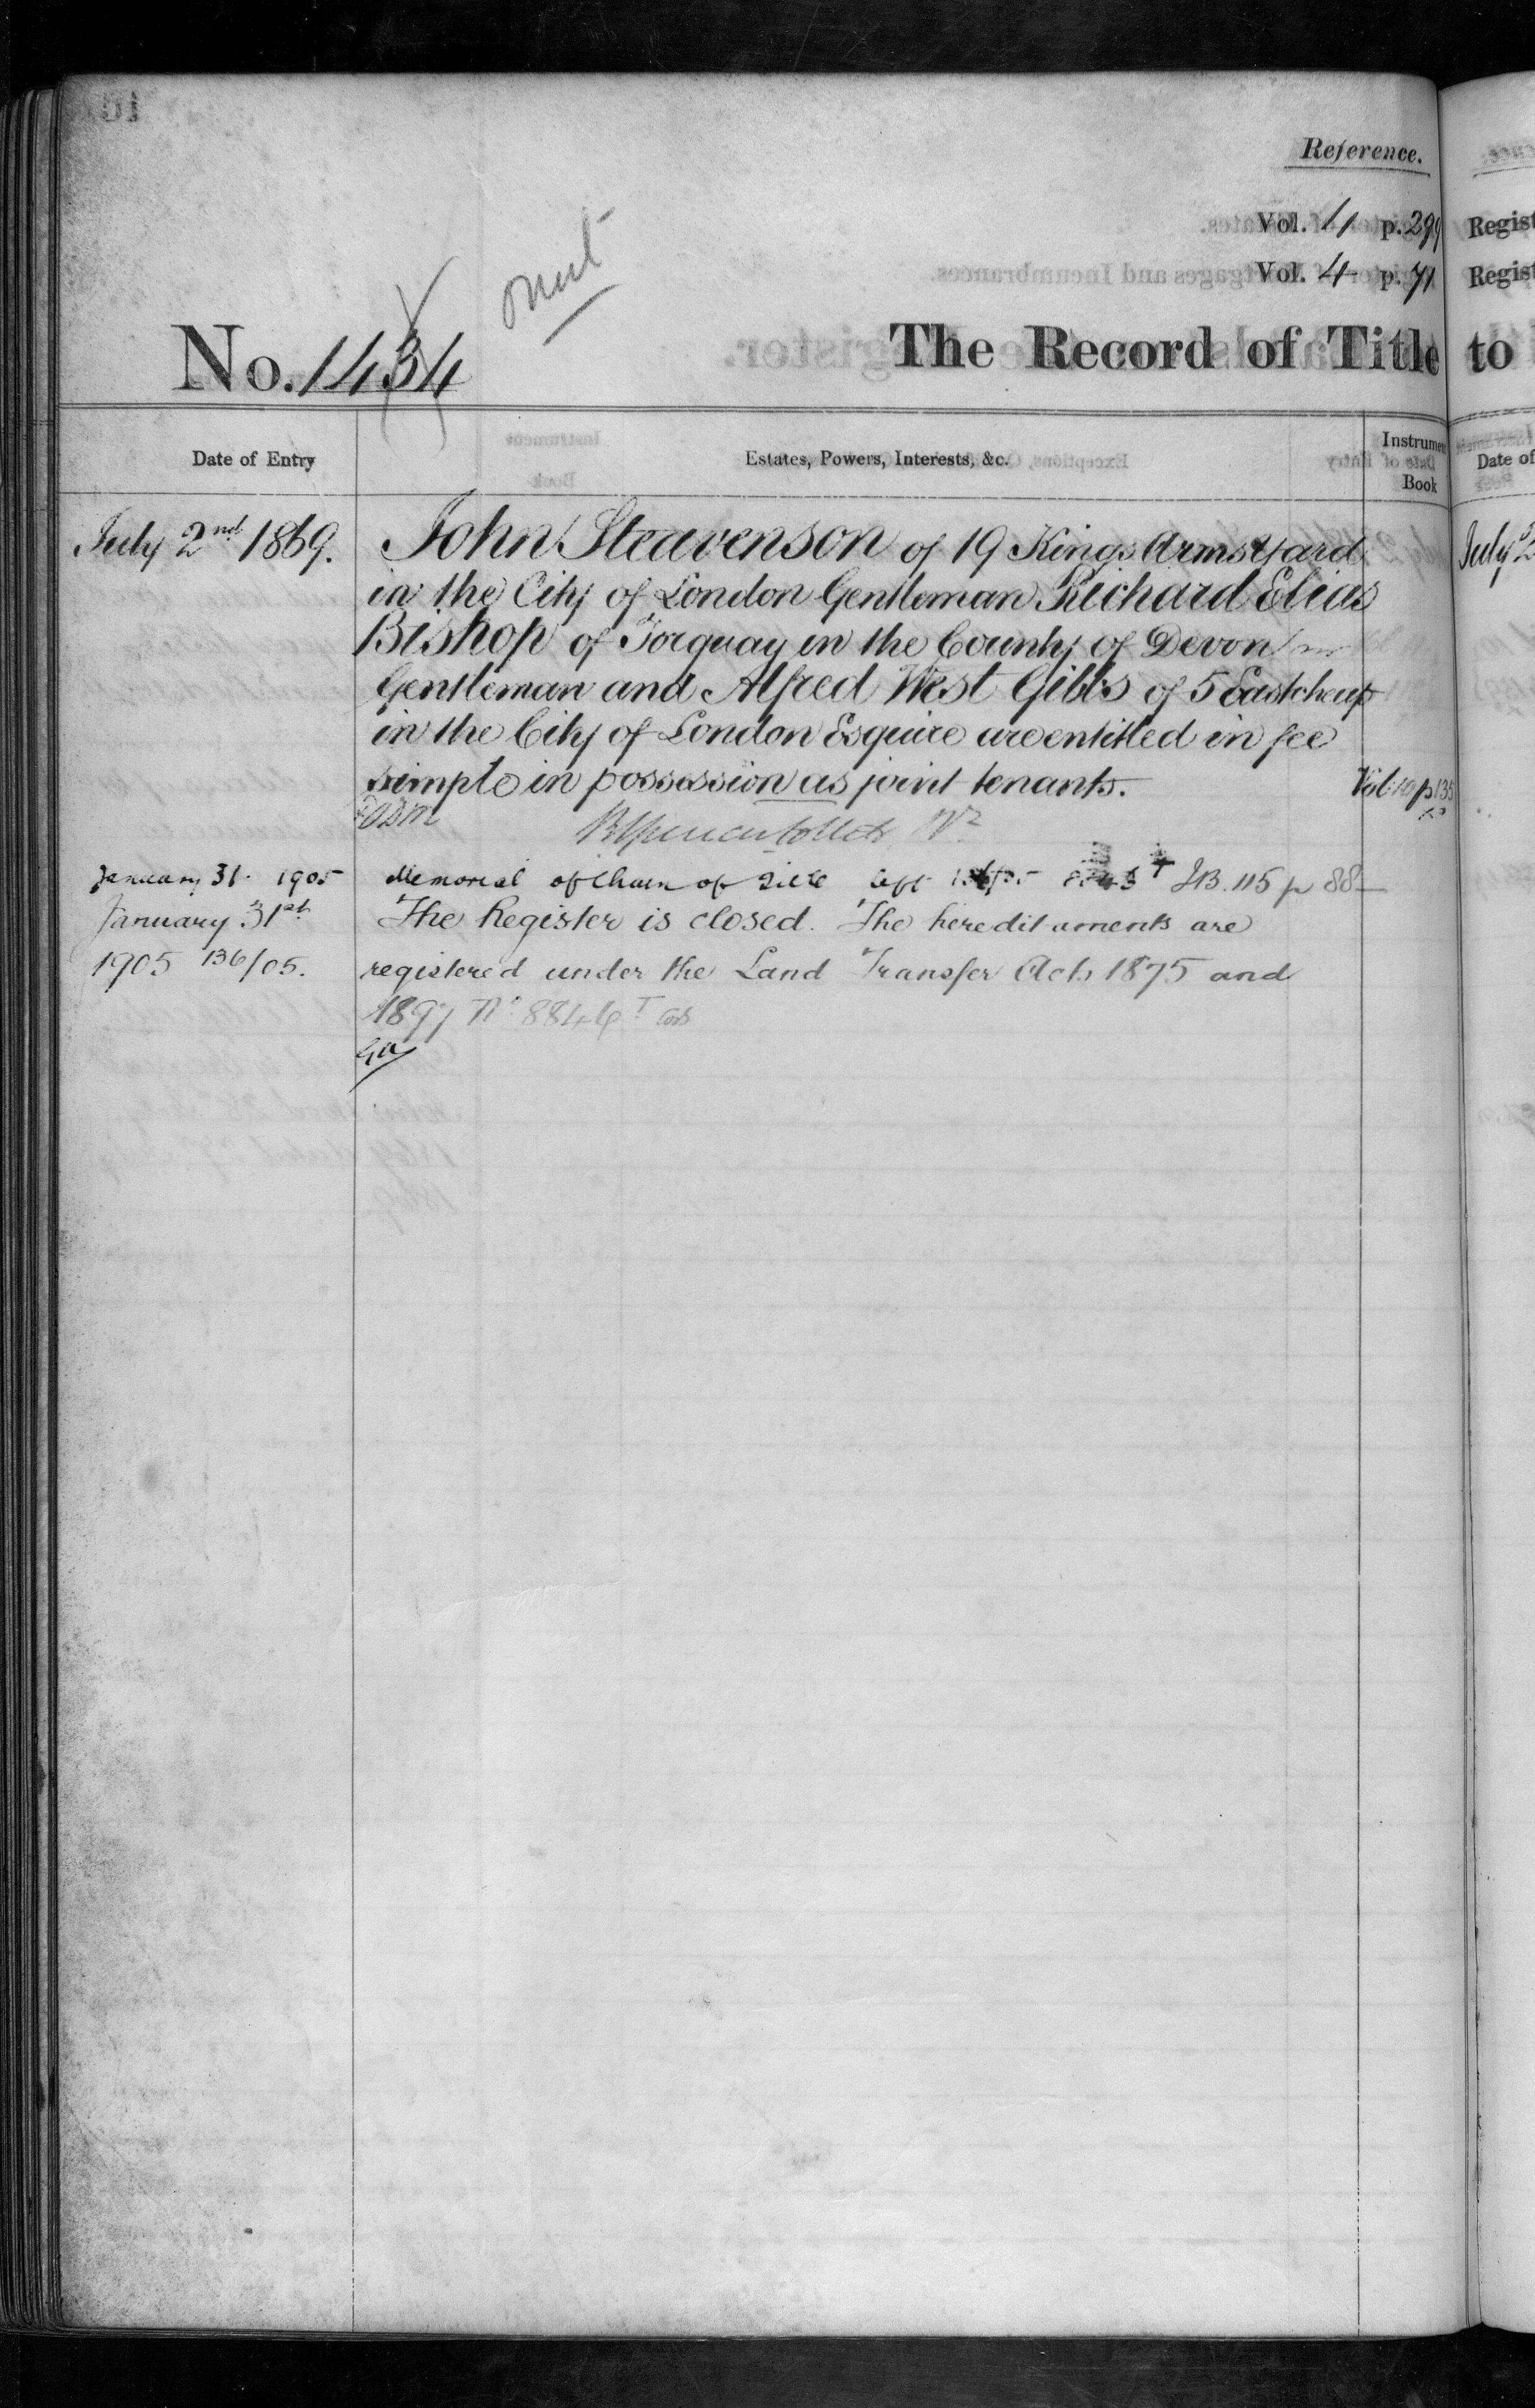 Reference.
Vol. 11 p. 299 Regist
Vol. 4 p. 71 Regist
No. 1434 The Record of Title to
Date of Entry Estates, Powers, Interests, &c. Instrumen Book Date of
July 2nd 1869. John Steavenson of 19 Kings Arms Yard July 2
in the City of London Gentleman Richard Elias
Bishop of Torquay in the County of Devon
Gentleman and Alfred West Gibbs of 5 Eastcheap
in the City of London Esquire are entitled in fee
simple in possession as joint tenants. Vol: 10 p 135
January 31. 1905 Memorial of Chain of Title left I.B. 115 p 88
January 31st The Register is closed. The hereditaments are
1905 136/05. registered under the Land Transfer Acts 1875 and
1897 No. 8846 T